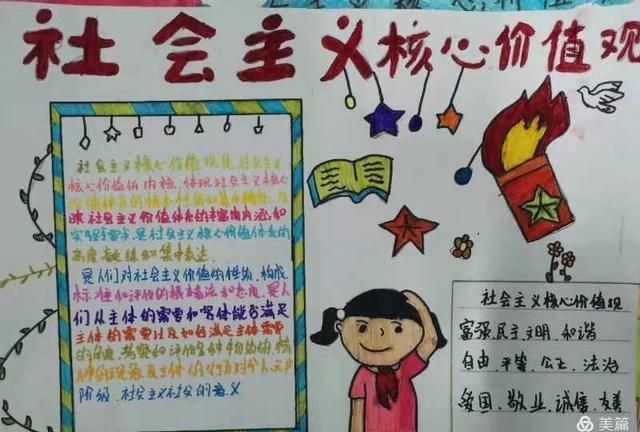 社会主义核心价值观
社会主义核心价值观是社会主义
核心价值的内核,体现社会主义核心
价值体系的根本性质和基本特征,反
映社会主义价值体系的丰富内涵和
实践要求,是社会主义核心价值体系的
高度凝练和集中表达.
是人们对社会主义价值的性质,构成,
标准和评价的根本看法和态度,是人
们从主体的需要和客体能否满足
主体的需要以及如何满足主体需要
阶级,社会主义社会的意义
社会主义核心价值观
富强,民主,文明,和谐
自由、平等、公正、法治
爱国、敬业、诚信、友善
美篇